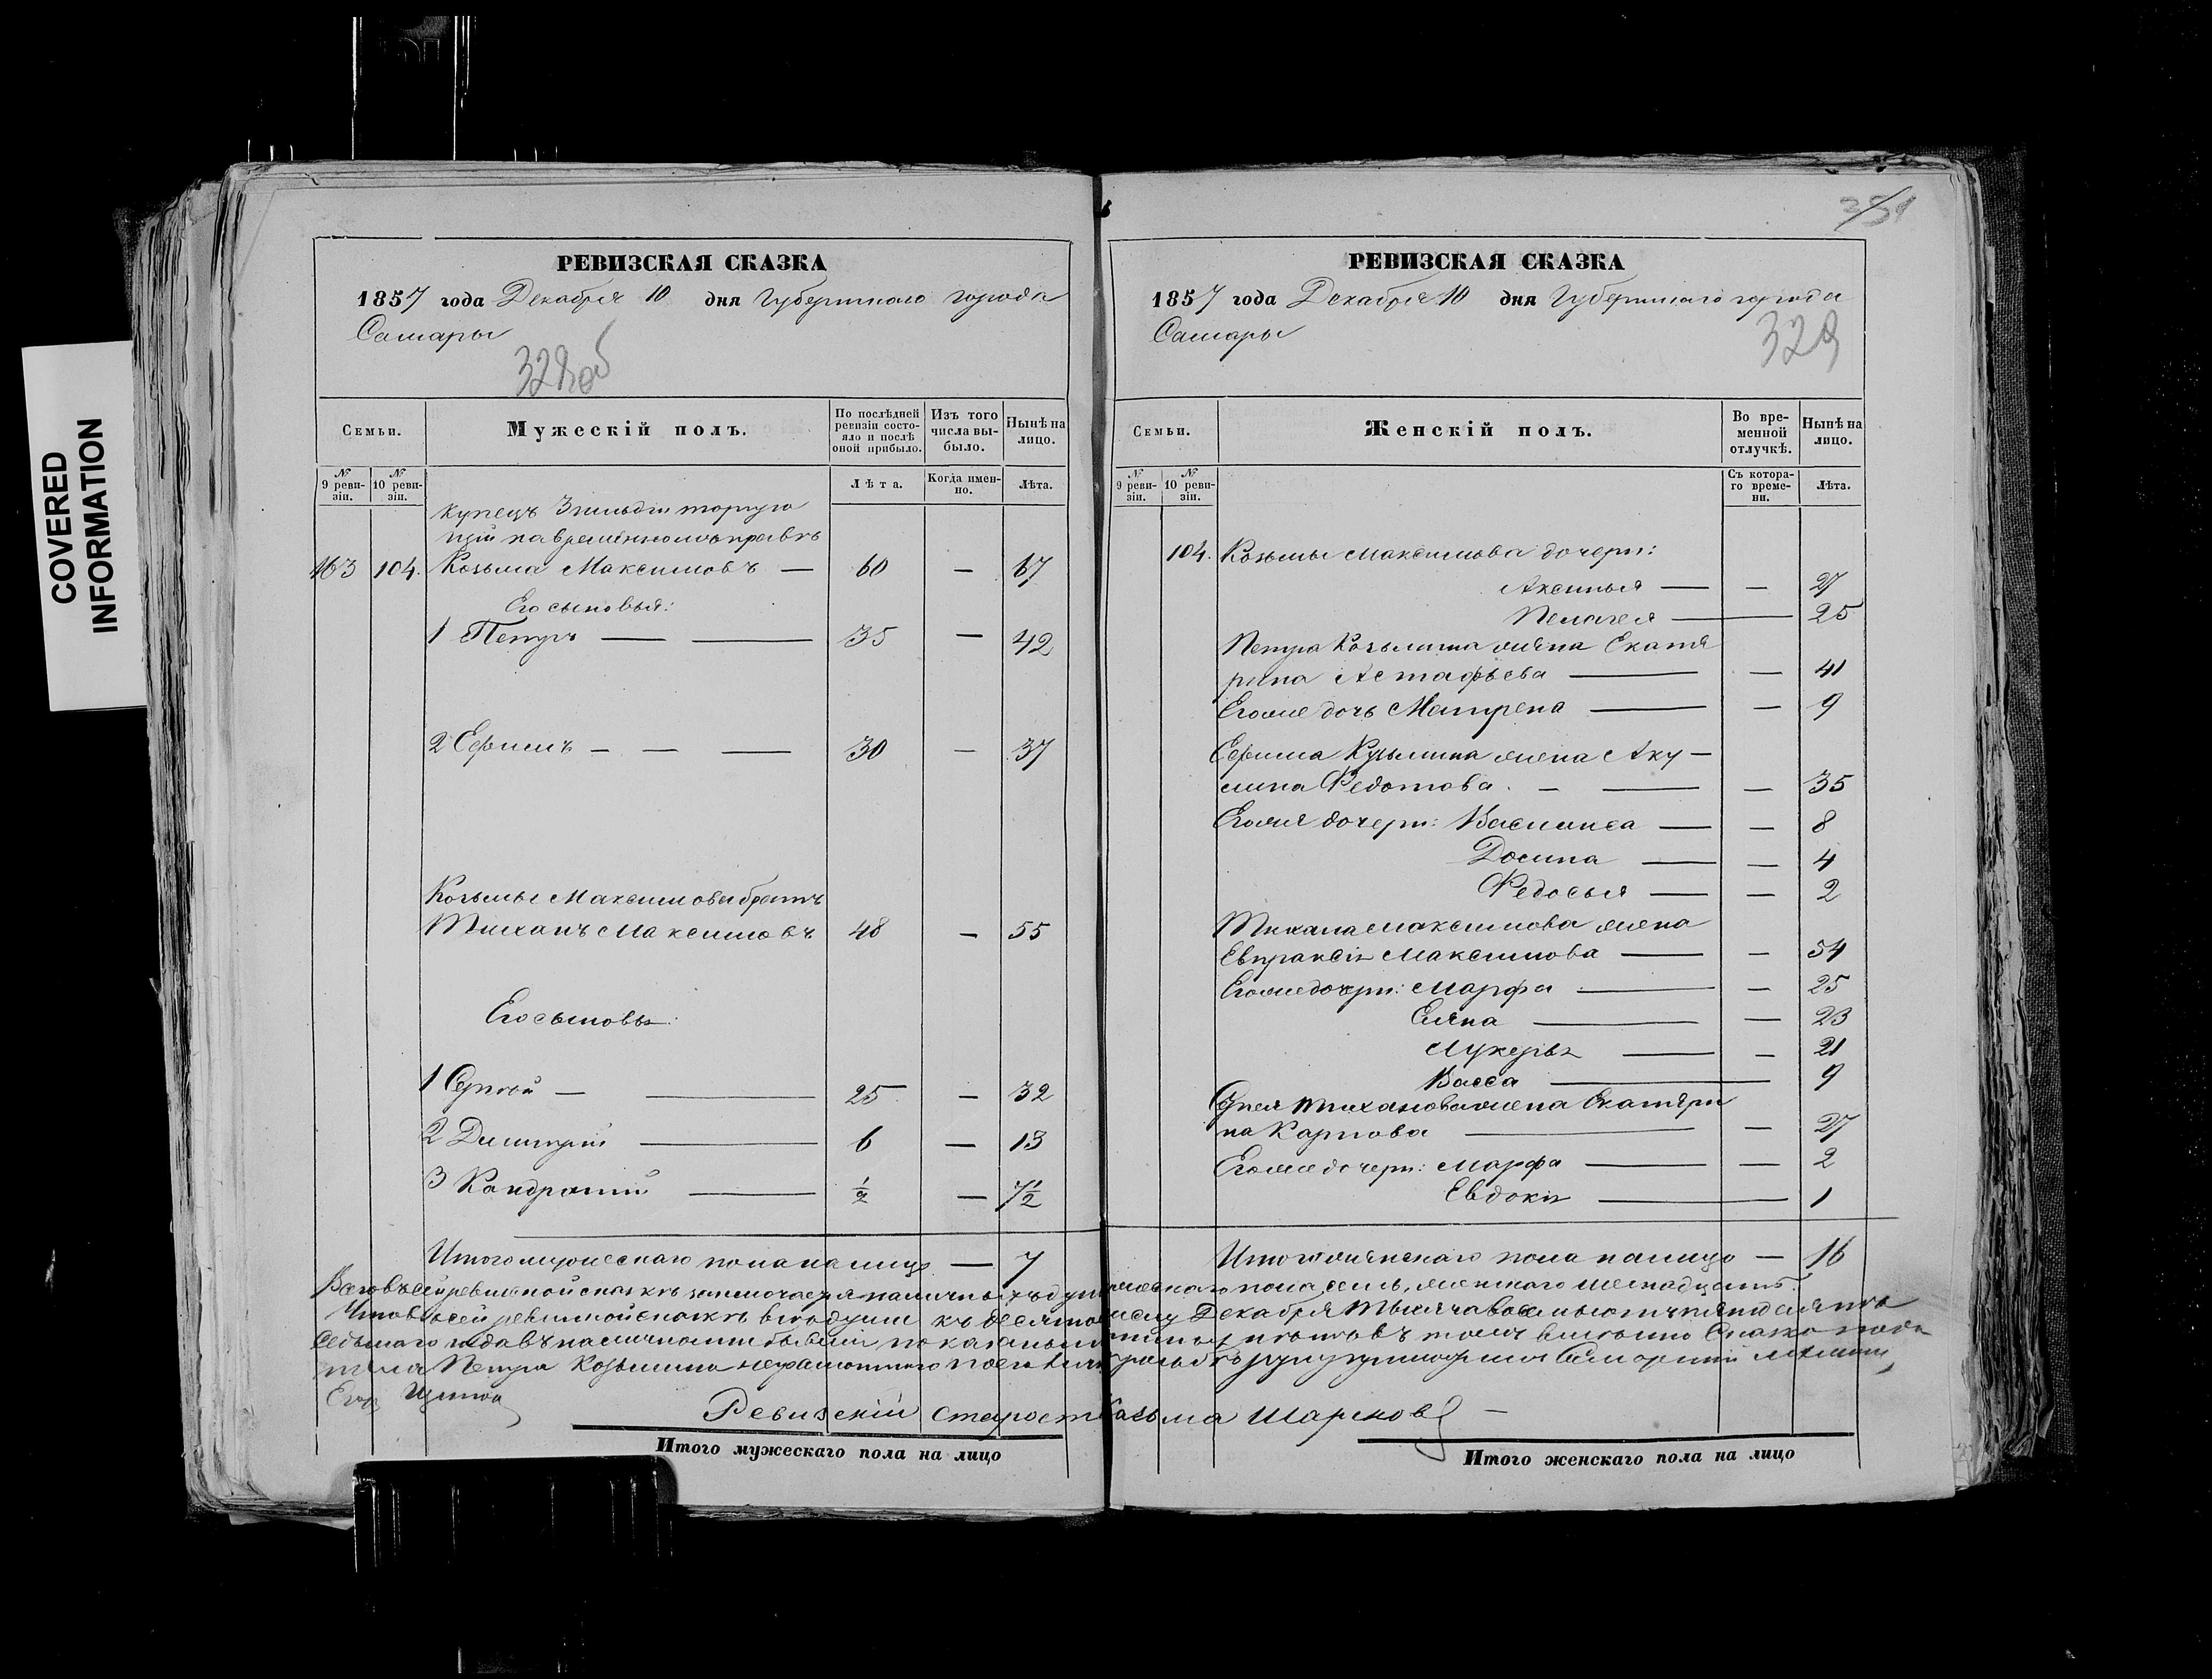 COVERED
INFORMATION
РЕВИЗСКАЯ СКАЗКА
1857 года Декабря 10 дня Губернскаго города
Самары
328 об
Семьи.
Мужескій полъ.
По послѣдней ревизіи состояло и послѣ оной прибыло.
Изъ того числа выбыло.
Нынѣ на лицо.
№ 9 ревизіи.
№ 10 ревизіи.
Лѣта.
Когда именно.
Лѣта.
купецъ 3 гильдіи торгую
щій на временномъ правѣ
163 104. Козьма Максимовъ — 60 — 67
Его сыновья:
1 Петръ — — 35 — 42
2 Ефимъ — — — 30 — 37
Козьмы Максимова братъ
Тиханъ Максимовъ 48 — 55
Его сыновья:
1 Сергѣй — — 25 — 32
2 Дмитрій — 6 — 13
3 Кондратій — ½ — 7½
Итого мужескаго пола на лицо — 7
351
РЕВИЗСКАЯ СКАЗКА
1857 года Декабря 10 дня Губернскаго города
Самары
329
Семьи.
Женскій полъ.
Во временной отлучкѣ.
Нынѣ на лицо.
№ 9 ревизіи.
№ 10 ревизіи.
Съ котораго времени.
Лѣта.
104. Козьмы Максимова дочери:
Аксинья — — 27
Пелагея — 25
Петра Козьмина жена Екате
рина Астафьева — — 41
Его же дочь Матрена — — 9
Ефима Кузьмина жена Аку —
лина Федотова. — — — 35
Его же дочери: Василиса — — 8
Домна — — 4
Федосья — — 2
Тихана Максимова жена
Евпраксія Максимова — — 54
Его же дочери: Марфа — — 25
Елена — — 23
Лукерья — — 21
Васса — 9
Сергея Тиханова жена Екатери
на Карпова — — 27
Его же дочери: Марфа — — 2
Евдокія — 1
Итого женскаго пола на лицо — 16
Всего въ сей ревизской сказкѣ заключается наличныхъ душъ мужескаго пола семь, женскаго шестнадцать.
Что въ сей ревизской сказкѣ всѣ души къ десятому числу Декабря тысяча восемьсотъ пятьдесятъ
седьмаго года въ наличности бывшія показаны и
Петра Козьмина неграмотнаго по его
Егор
Ревизскій староста Козьма Шарсковъ —
Итого мужескаго пола на лицо
Итого женскаго пола на лицо